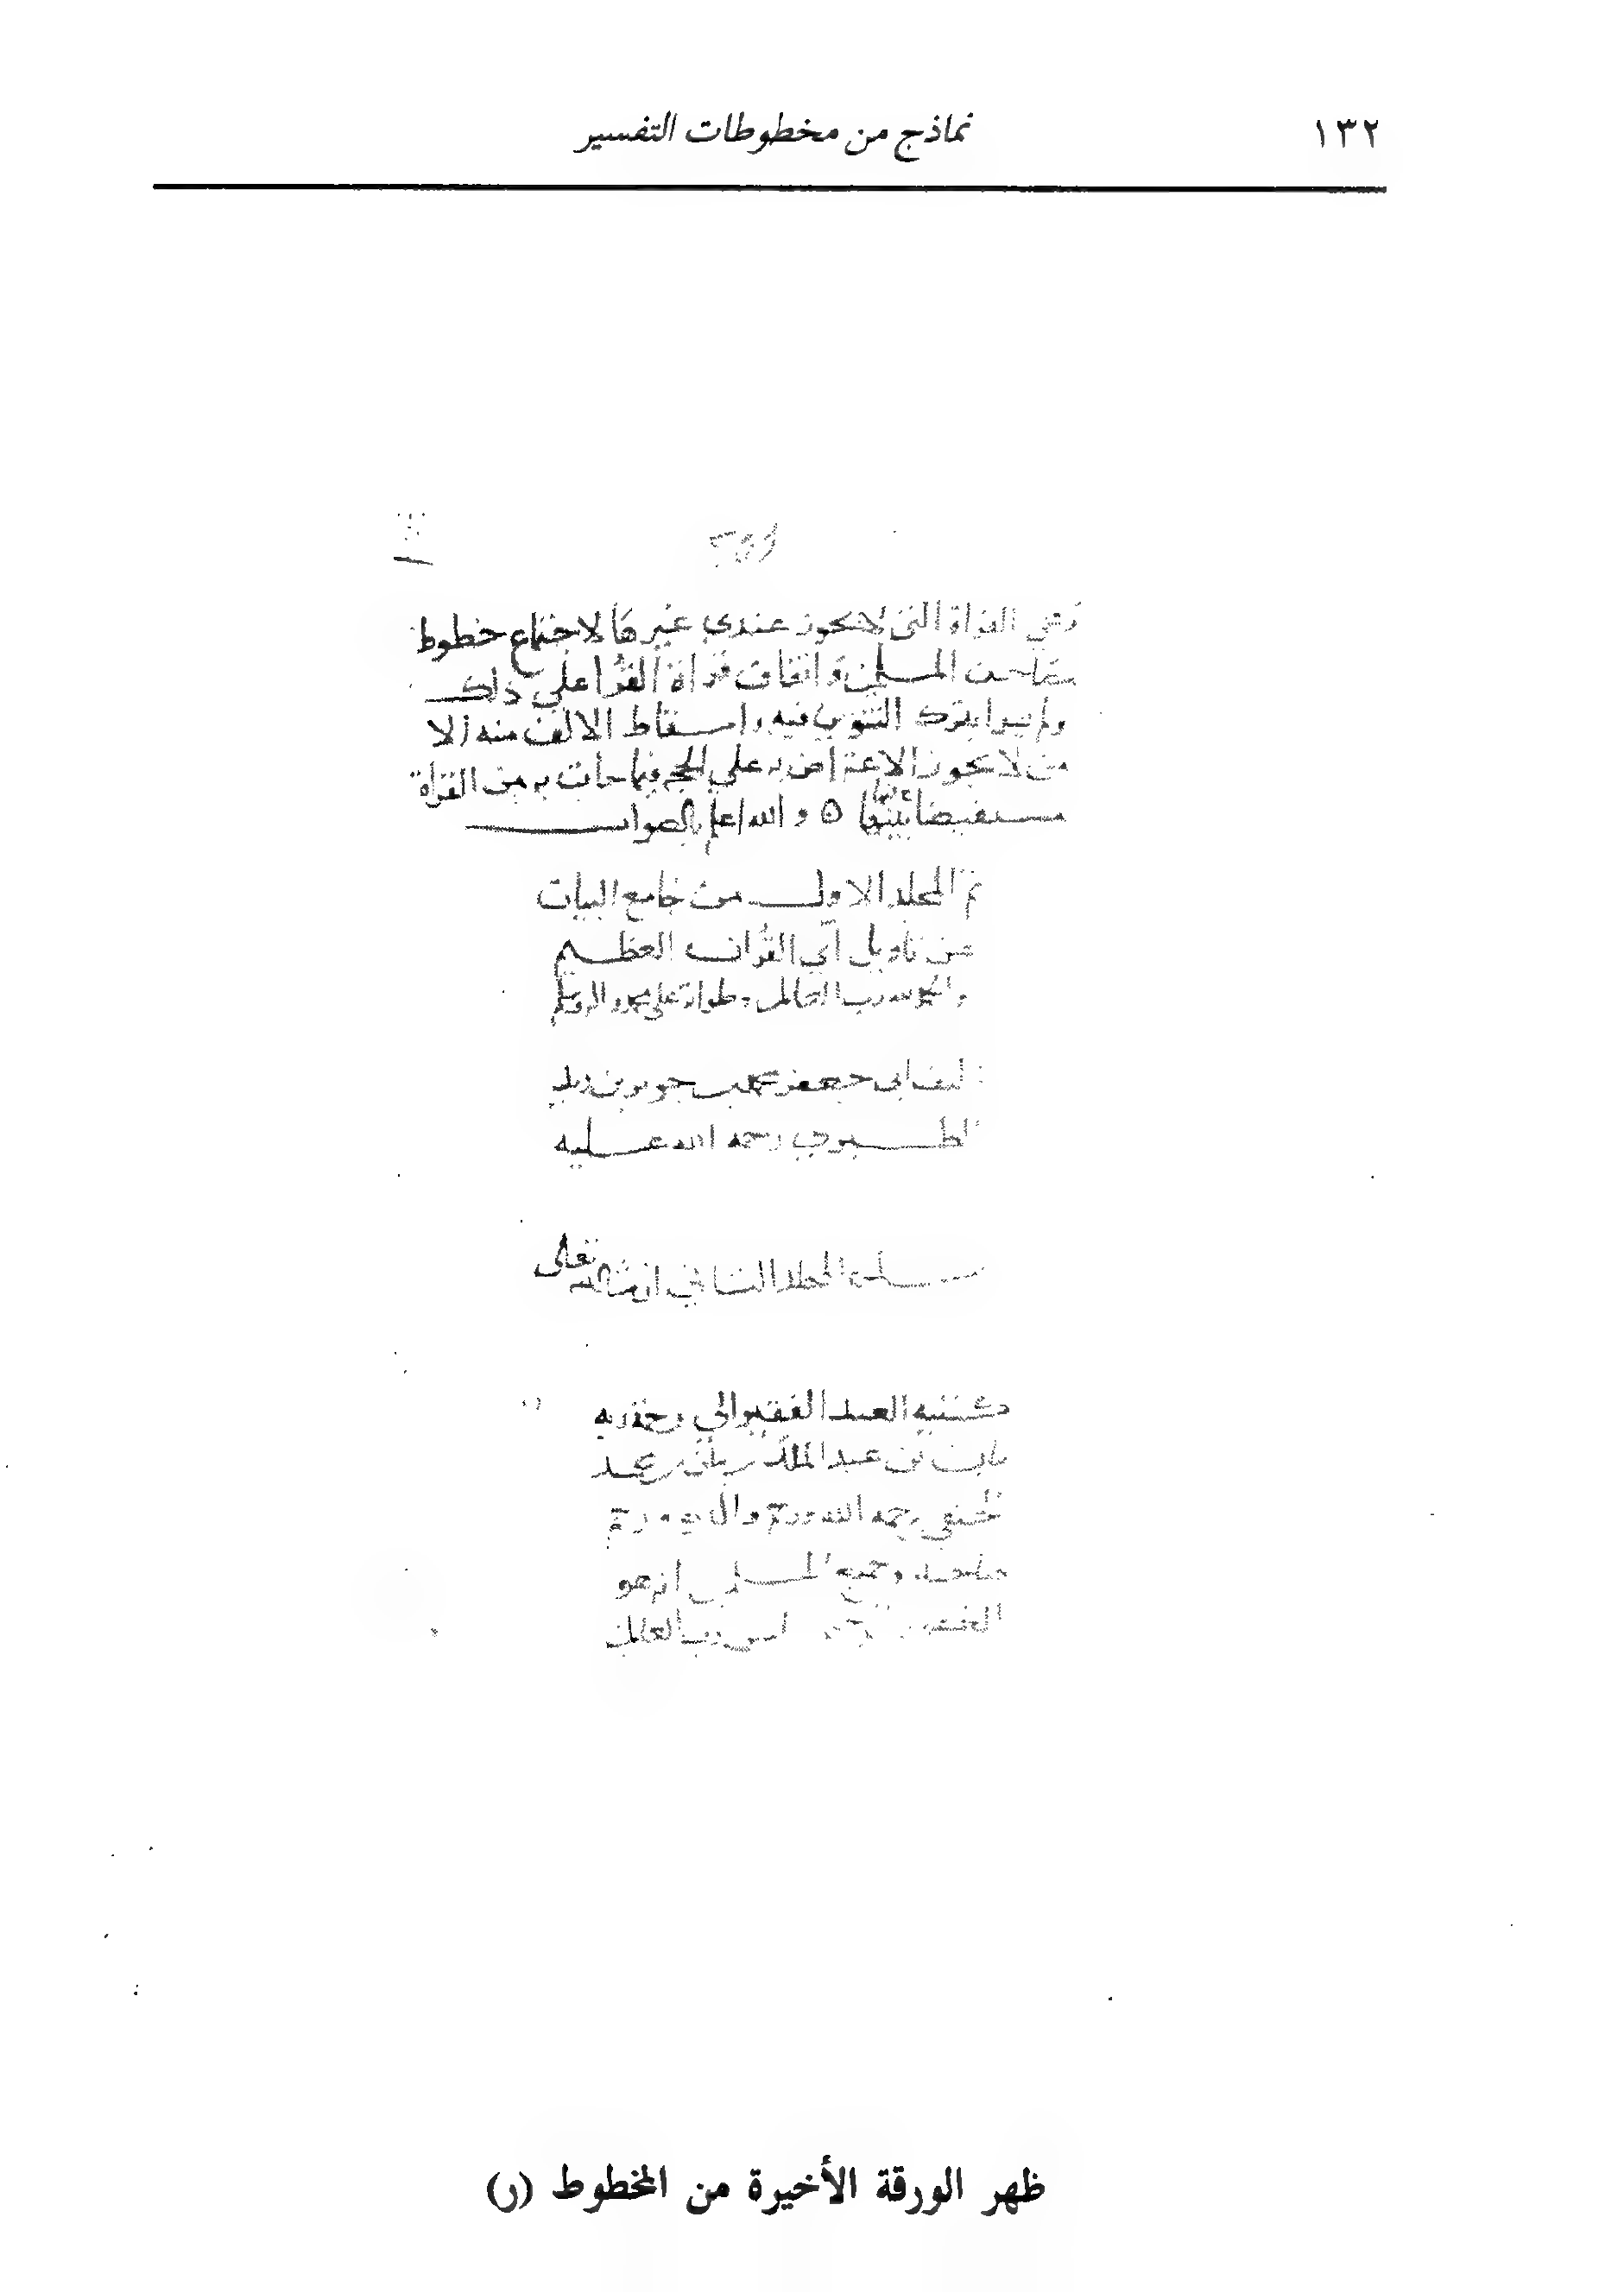 ١٣٢
نماذج من مخطوطات التفسير
القراة التي لا يجوز عندي غيرها لاجتماع خطوط
مصاحف المسلمين واتفاق قراة القرا علي ذلك
ولم يقرا بترك التنوين فيه واسقاط الالف منه الا
من لا يجوز الاعتراض به علي الحجة فيما جات به من القراة
مستفيضا بينها والله اعلم بالصواب
تم المجلد الاول من جامع البيان
عن تاويل آي القران العظيم
والحمد لله رب العالمين وصلواته على محمد واله وسلم
تاليف ابي جعفر محمد بن جرير بن يزيد
الطبري رحمة الله عليه
المجلد الثاني ان شا الله تعالى
كتبه العبد الفقير الي رحمة ربه
بن عبد الملك بن محمد
الحنفي رحمه الله ورحم والديه ورحم
وجميع المسلمين انه هو
الغفور رب العالمين
ظهر الورقة الأخيرة من المخطوط (ر)